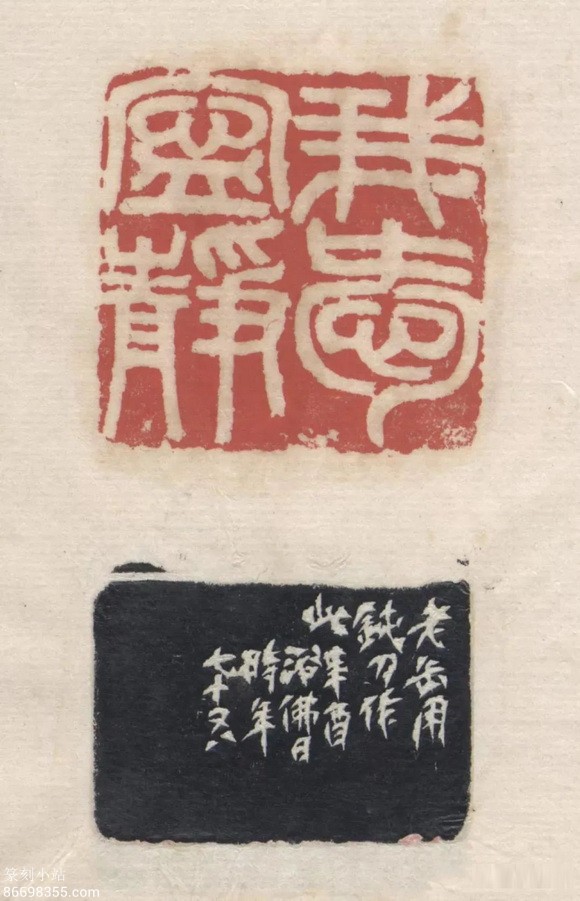 我愛
寧靜
老岳用
鈍刀作
此辛酉
浴佛日
時年
七十又八
篆刻小站
86698355.com